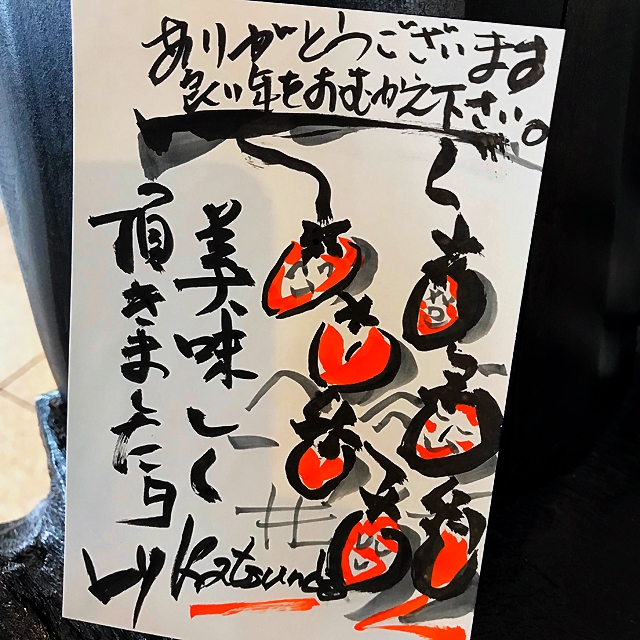 ありがとうございます
良い年をおむかえ下さい。
美味しく
頂きました
by Katsunda